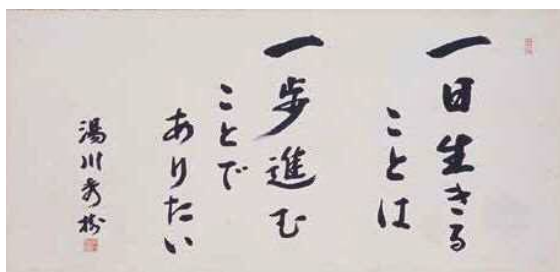 一日生きる
ことは
一歩進む
ことで
ありたい
湯川秀樹